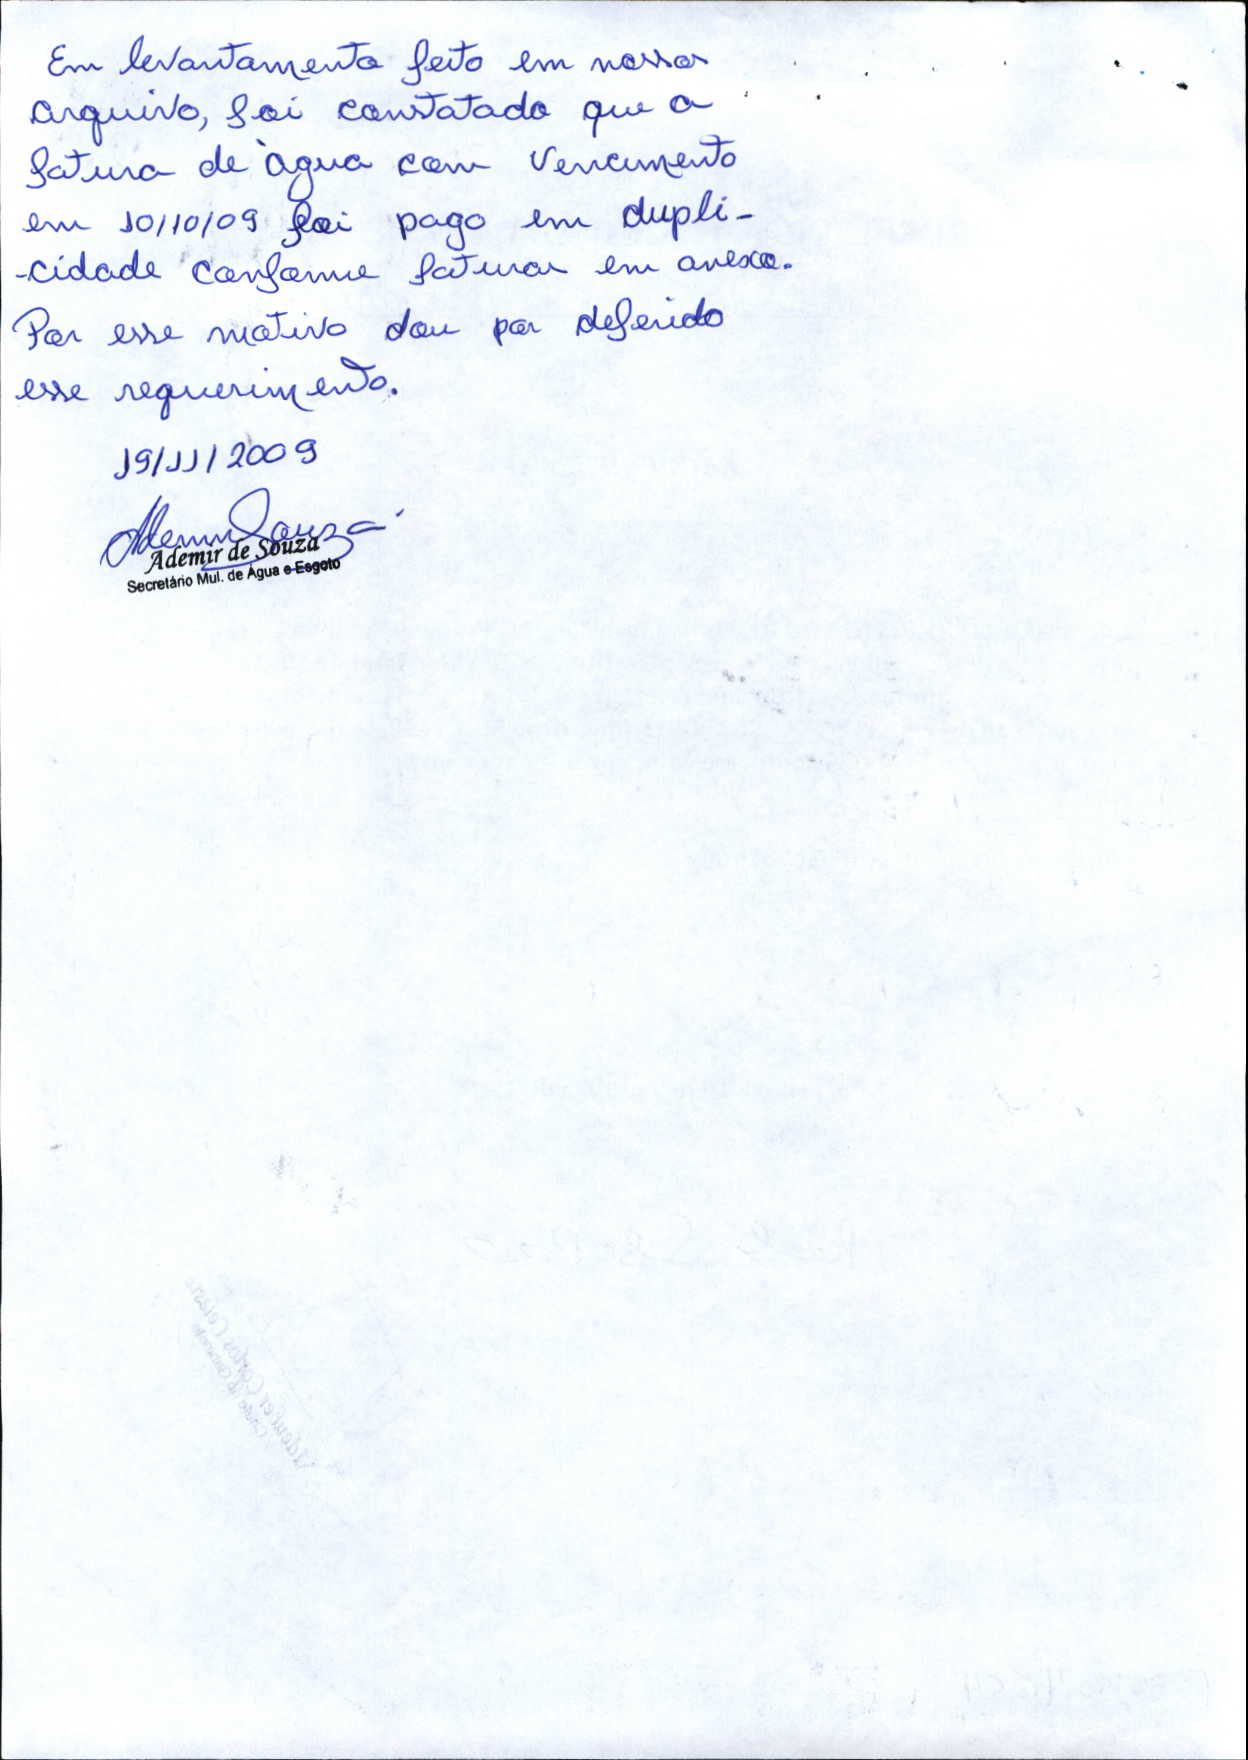 Em levantamento feito em nossos
arquivo, foi constatado que a
fatura de àgua com vencimento
em 10/10/09 foi pago em dupli-
-cidade conforme faturas em anexo.
Por esse motivo dou por deferido
esse requerimento.
19/11/2009
Ademir Souza
Ademir de Souza
Secretário Mul. de Água e Esgoto